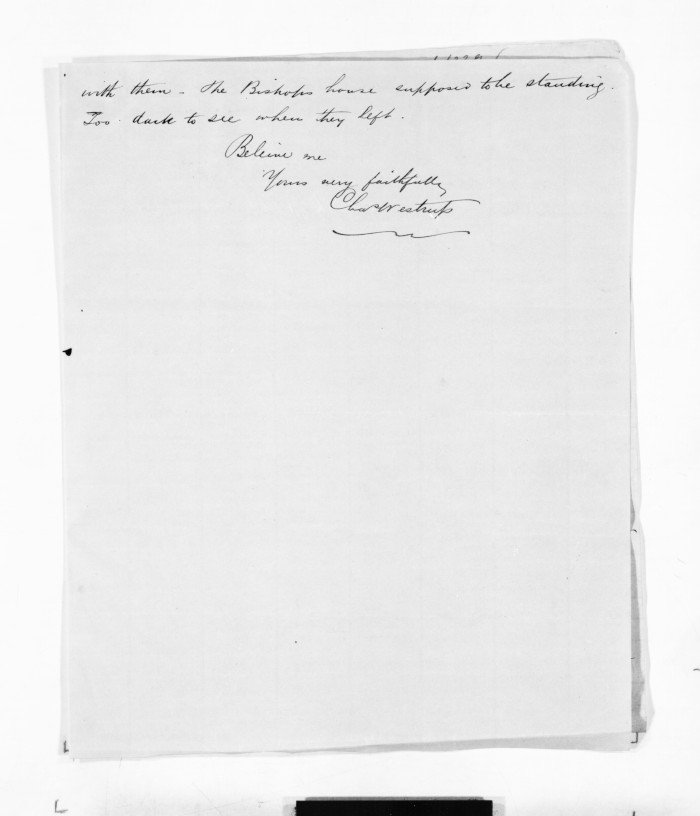 with them - The Bishops house supposed to be standing.
Too dark to see when they left.
Believe me
Yours very faithfully
Chas Westrup